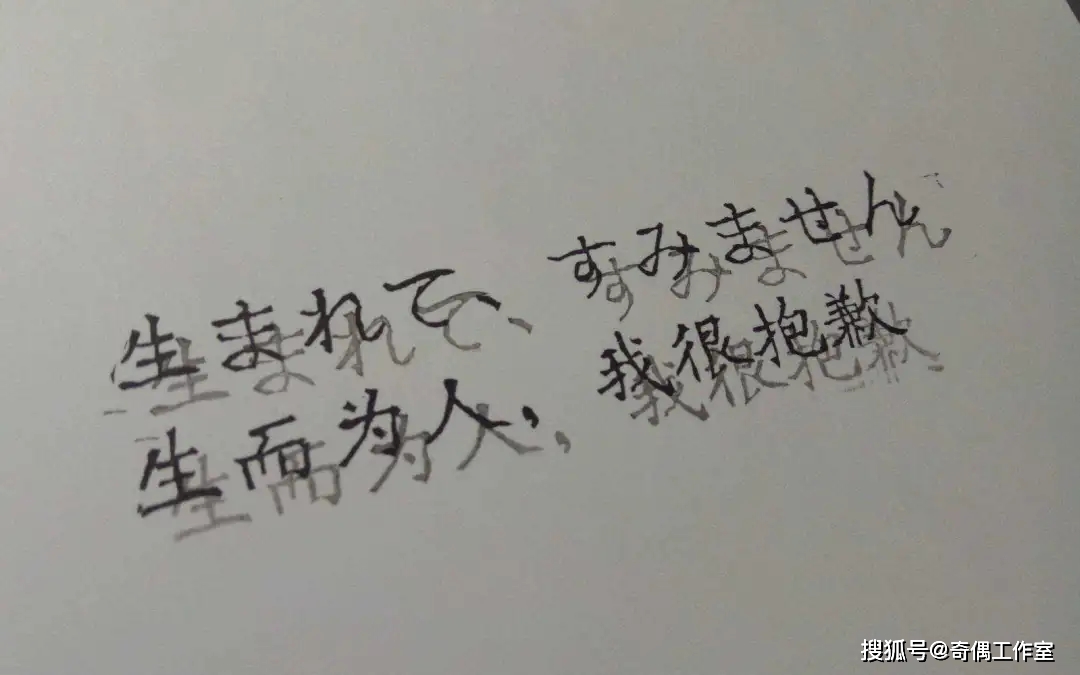 生まれて、すみません
生而为人,我很抱歉
搜狐号@奇偶工作室